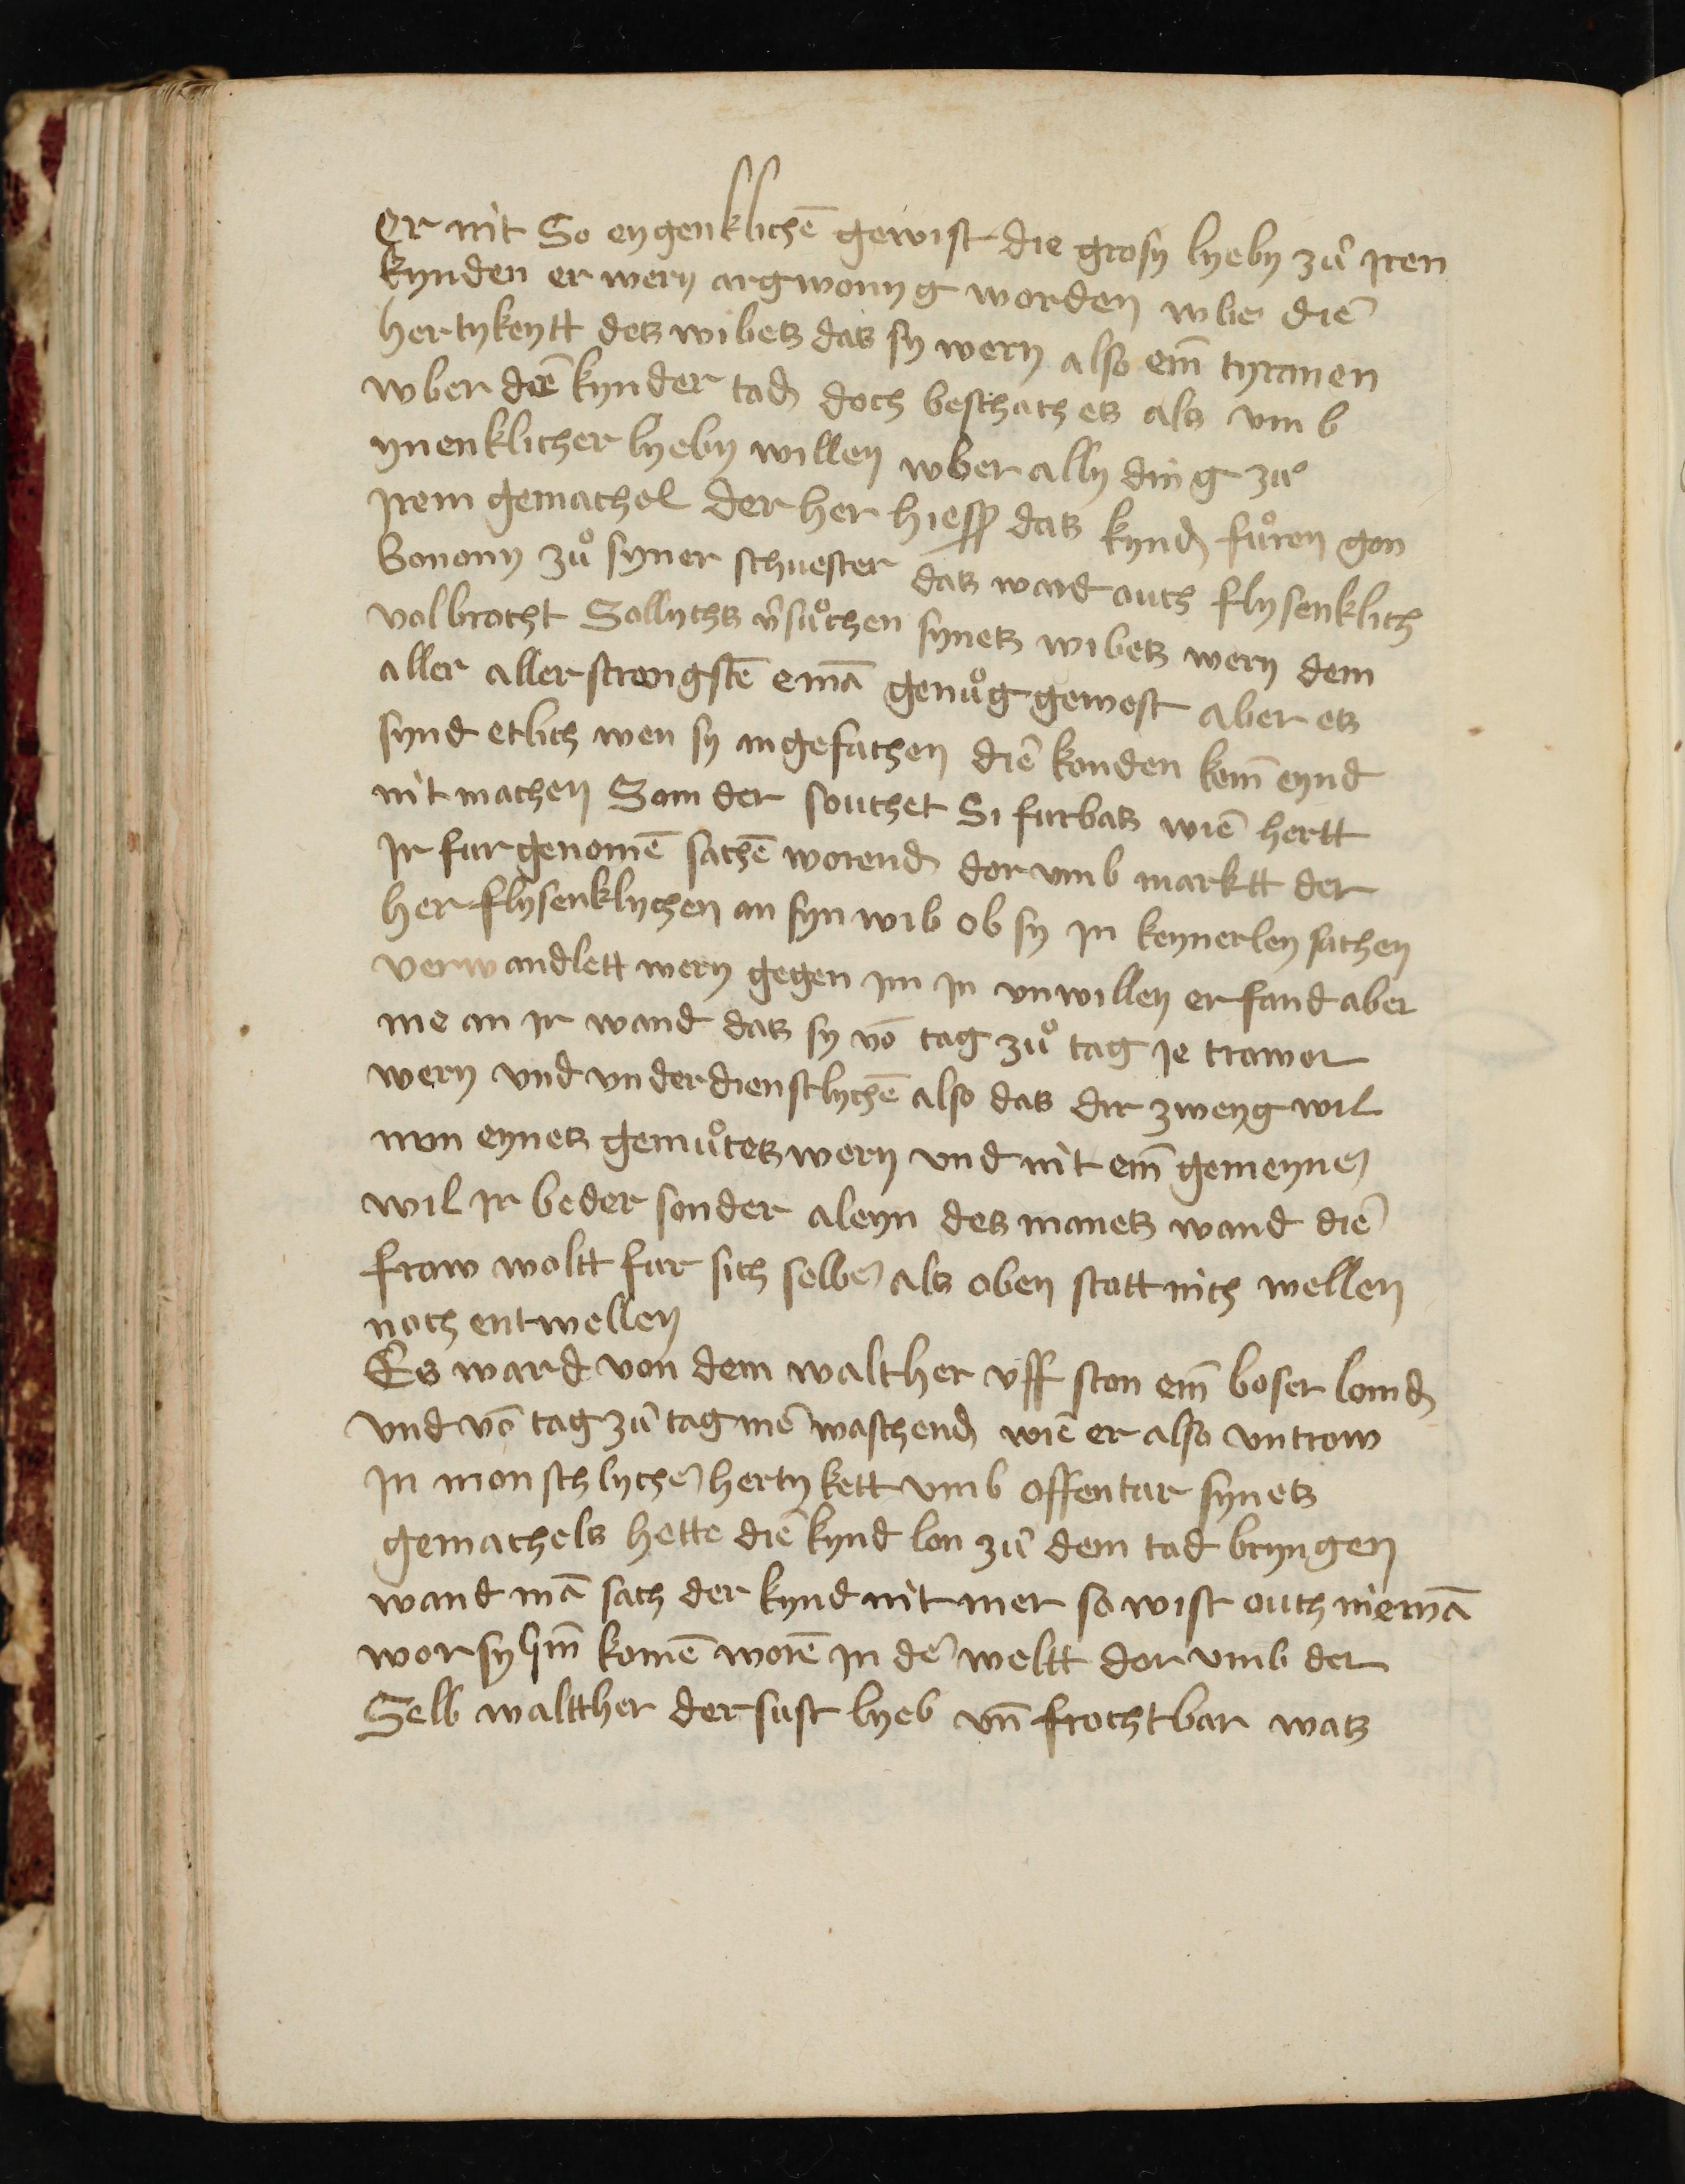 Er nit So eygenklichē gewist die grosy lyeby zů iren
kynden er wery argwonyg worden wber diē
hertykeytt des wibes das sy wery also ein̄ tyranen
wber diē kynder tad doch beschach es als vm b
ynenklicher lyeby willen wber ally ding zů
irem gemachel der her hiess das kynd fůren gon
Bonony zů syner schuester das ward ouch flysenklich
volbrocht Sollychs v̄sůchen synes wibes wery dem
aller aller strengstē emā genůg gewest aber es
synd etlich wen sy angefachen diē konden kein̄ eynd
nit machen Som der souchet Si furbas wiē hertt
Ir furgenomē sachē worend dor vmb marktt der
her flysenklychen an syn wib ob sy in keynerley sachen
verwandlett wery gegen im in vnwillen er fand aber
nie an ir wand das sy vō tag zů tag ie trawor
wery vnd vnderdienstlychē also das dir zweyg wil
nun eynes gemůtes wery vnd nit ein̄ gemeynen
wil ir beder sonder aleyn des manes wand diē
fraw woltt fur sich selbē als oben statt nich wellen
noch entwellen
Es ward von dem walther vff ston ein̄ boser lomd
vnd vō tag zů tag mē waschend wiē er also vntrow
In monschlychē hertykett vmb offentur synes
gemachels hette diē kynd lon zů dem tad bryngen
wand mā sach der kynd nit mer so wist ouch niemā
wor sy hin̄ komē worē in dē weltt dor vmb der
Selb waltther der sust lyeb vn̄ frochtbar was